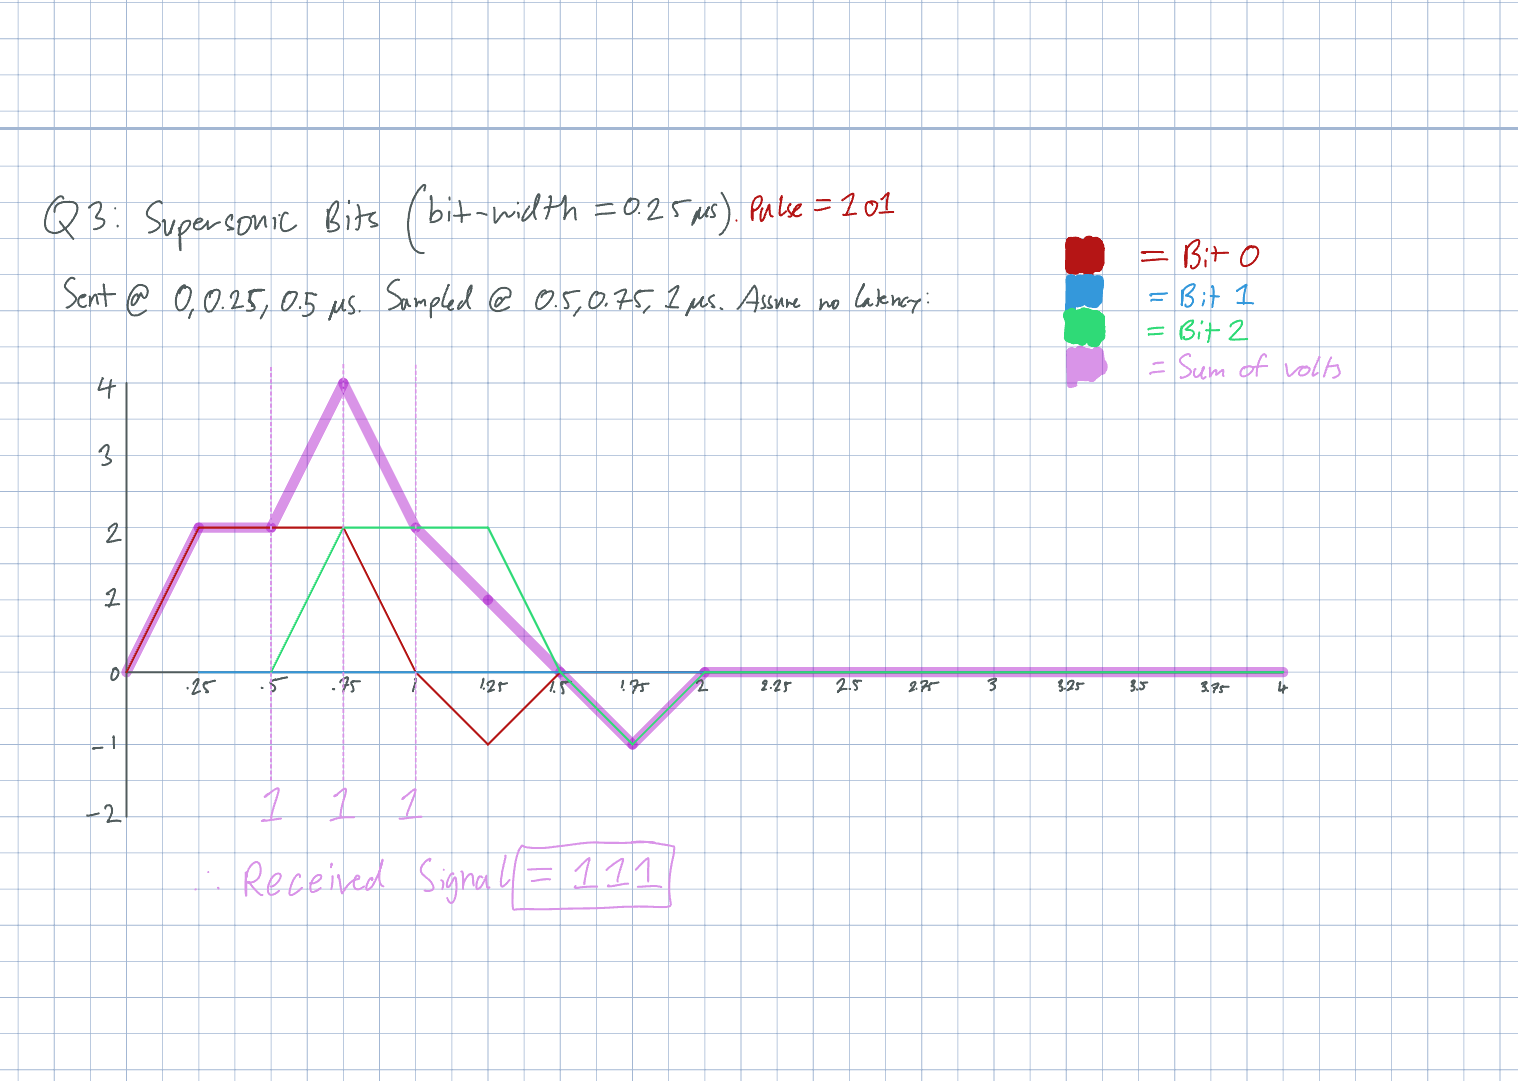 Q3: Supersonic Bits (bit-width = 0.25 μs). Pulse = 101
Sent @ 0, 0.25, 0.5 μs. Sampled @ 0.5, 0.75, 1 μs. Assume no latency:
= Bit 0
= Bit 1
= Bit 2
= Sum of volts
4
3
2
1
0
-1
-2
.25 .5 .75 1 1.25 1.5 1.75 2 2.25 2.5 2.75 3 3.25 3.5 3.75 4
1 1 1
∴ Received Signal = 111